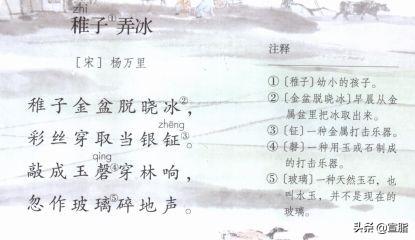 zhì
稚子①弄冰
［宋］杨万里
稚子金盆脱晓冰②，
zhēng
彩丝穿取当银钲③。
qìng
敲成玉磬④穿林响，
忽作玻璃⑤碎地声。
注释
①〔稚子〕幼小的孩子。
②〔金盆脱晓冰〕早晨从金
属盆里把冰取出来。
③〔钲〕一种金属打击乐器。
④〔磬〕一种用玉或石制成
的打击乐器。
⑤〔玻璃〕一种天然玉石，也
叫水玉，并不是现在的
玻璃。
头条 @宣服